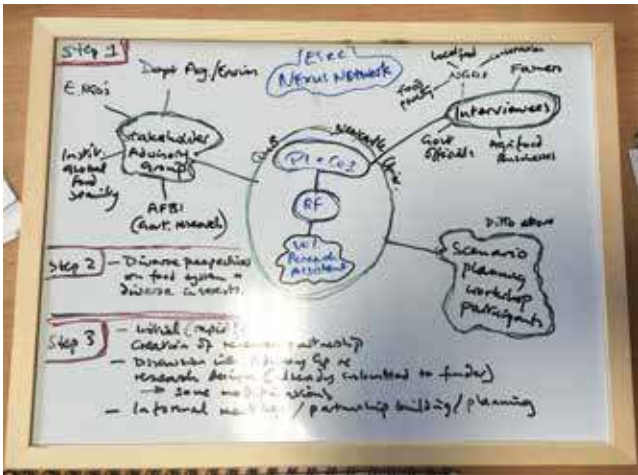 Step 1
ESRC
Nexus Network
Dept Ag./Environ
E.NGOs
Stakeholder
Advisory
group
Instit.
global
food
security
AFBI
(Govt. research)
PI + CoI
RF
Research
Assistant
Local food
NGOs
Food
poverty
Farmers
Interviewees
Govt
officials
Agrifood
Businesses
Ditto above
Scenario
planning
workshop
participants
Step 2
- Diverse perspectives
on food system +
diverse interests
Step 3
- Initial (rapid)
creation of research partnership
- Discussion with Advisory Gp re
research design (already submitted to funder)
→ some modifications
- Informal meetings / partnership building / planning